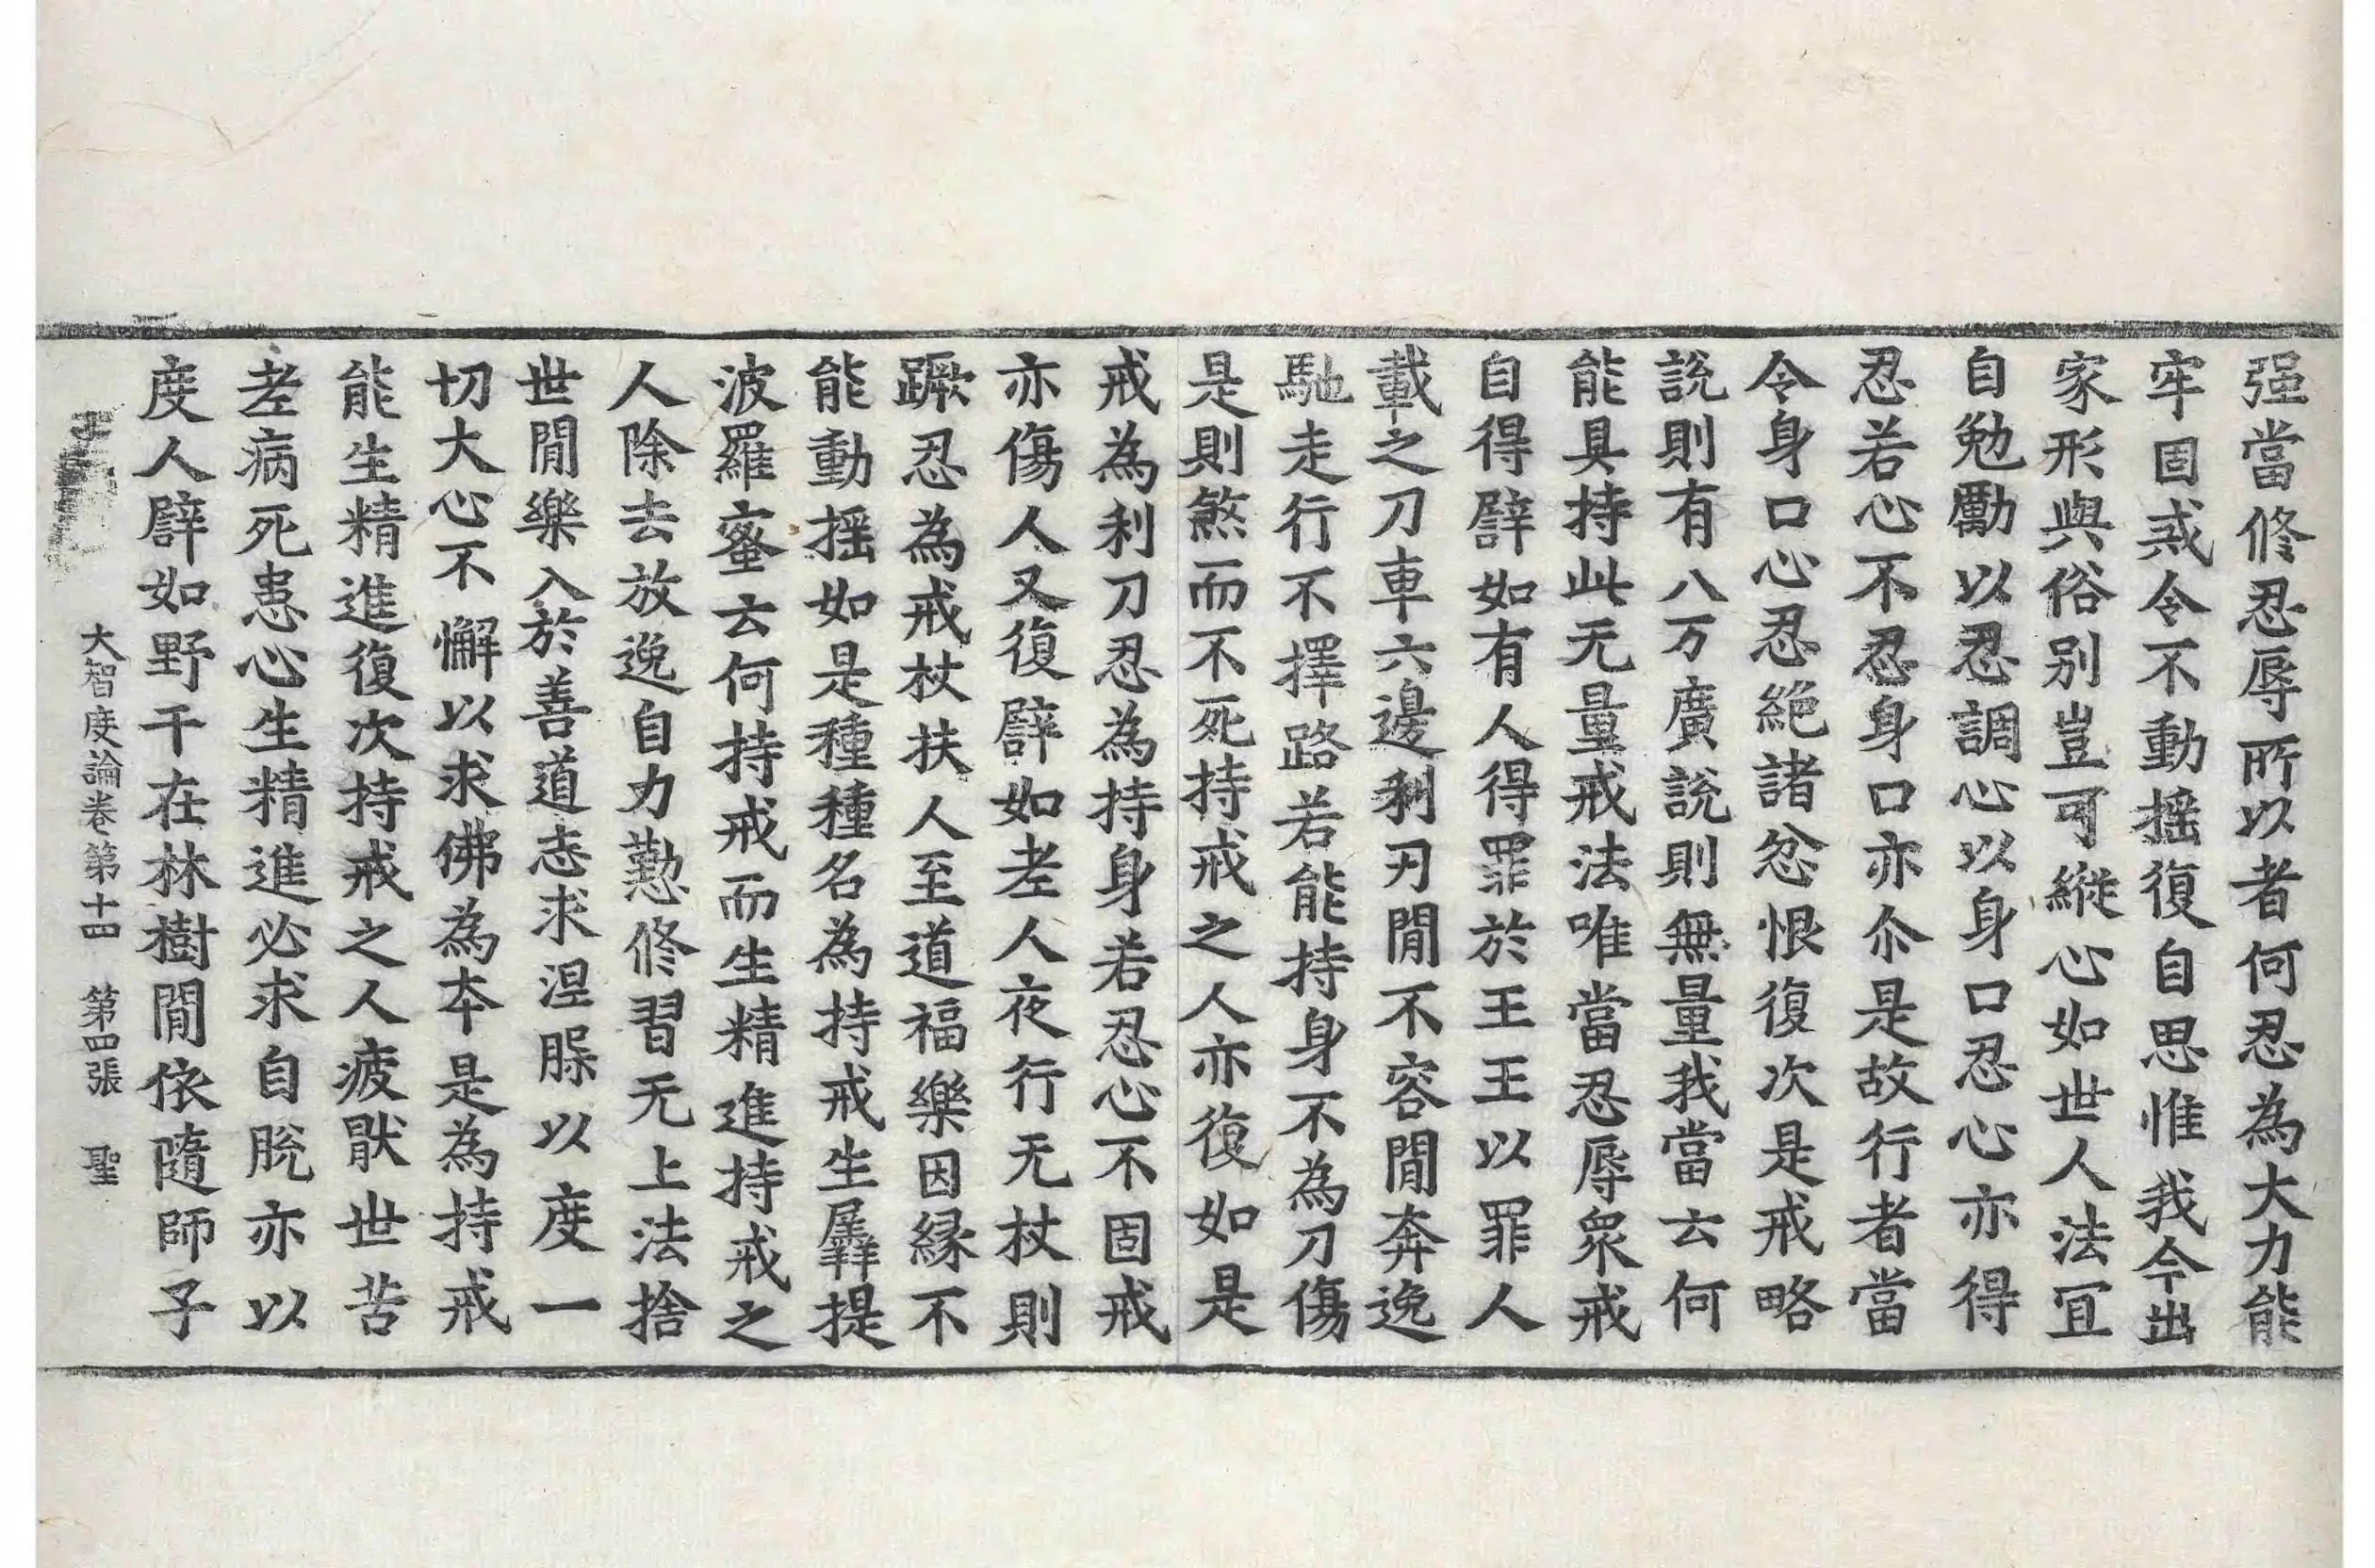 强當修忍辱所以者何忍為大力能
牢固戒令不動摇復自思惟我今出
家形與俗别豈可縱心如世人法宜
自勉勵以忍調心以身口忍心亦得
忍若心不忍身口亦尒是故行者當
令身口心忍絶諸忿恨復次是戒略
說則有八万廣說則無量我當云何
能具持此无量戒法唯當忍辱衆戒
自得譬如有人得罪於王王以罪人
載之刀車六邊利刃閒不容閒奔逸
馳走行不擇路若能持身不為刀傷
是則煞而不死持戒之人亦復如是
戒為利刀忍為持身若忍心不固戒
亦傷人又復譬如老人夜行无杖則
蹶忍為戒杖扶人至道福樂因緣不
能動摇如是種種名為持戒生羼提
波羅蜜云何持戒而生精進持戒之
人除去放逸自力懃修習无上法捨
世閒樂入於善道志求涅槃以度一
切大心不懈以求佛為本是為持戒
能生精進復次持戒之人疲猒世苦
老病死患心生精進必求自脫亦以
度人譬如野干在林樹閒依隨師子
大智度論卷第十四 第四張 聖